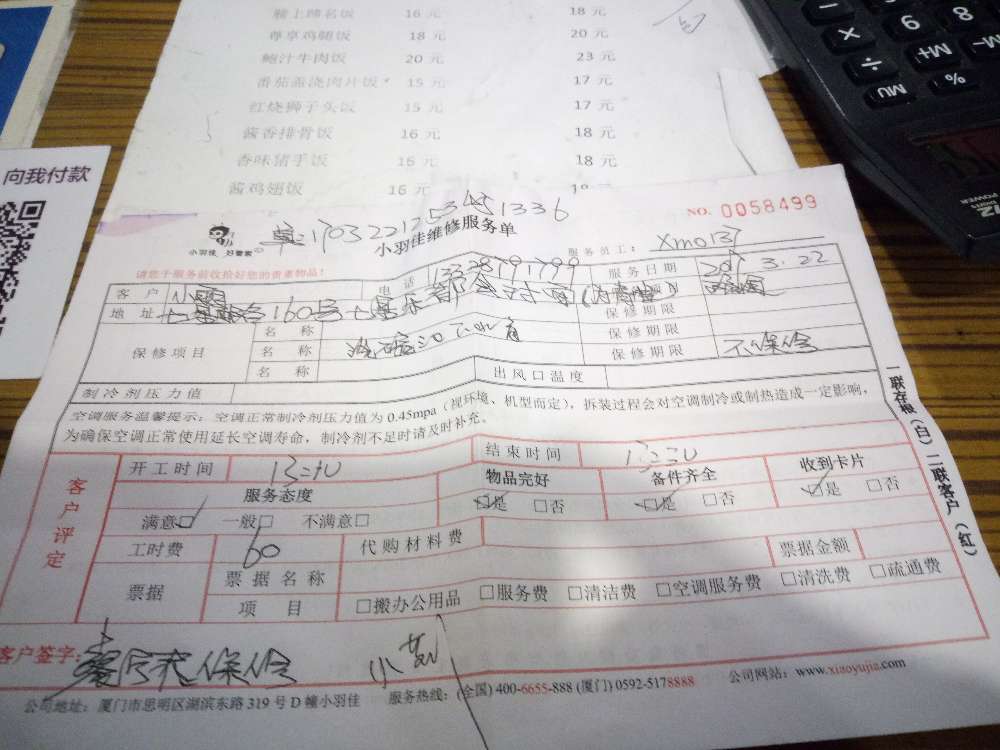 16 元 18 元
尊享鸡腿饭 18 元 20 元
鲍汁牛肉饭 20 元 23 元
番茄盖浇肉片饭 15 元 17 元
红烧狮子头饭 15 元 17 元
酱香排骨饭 16 元 18 元
香味猪手饭 16 元 18 元
酱鸡翅饭 16 元 18 元
向我付款
× 9 8
÷ M+ M-
MU %
NO. 0058499
小羽佳 好管家
小羽佳维修服务单
服务员工: Xm0137
请您于服务前收拾好您的贵重物品!
客户 电话 服务日期 2017 3.22
地址 160号 保修期限
保修项目 名称 保修期限
名称 保修期限 不保修
名称 出风口温度
制冷剂压力值
空调服务温馨提示: 空调正常制冷剂压力值为 0.45mpa (视环境、机型而定), 拆装过程会对空调制冷或制热造成一定影响,
为确保空调正常使用延长空调寿命, 制冷剂不足时请及时补充。
一联存根(白)二联客户(红)
客户评定
开工时间 结束时间
服务态度 物品完好 备件齐全 收到卡片
满意□ 一般□ 不满意□ □是 □否 □是 □否 □是 □否
工时费 60 代购材料费 票据金额
票据 票据名称
项目 □搬办公用品 □服务费 □清洁费 □空调服务费 □清洗费 □疏通费
客户签字:
公司地址: 厦门市思明区湖滨东路 319 号 D 幢小羽佳 服务热线: (全国) 400-6655-888 (厦门) 0592-5178888 公司网站: www.xiaoyujia.com